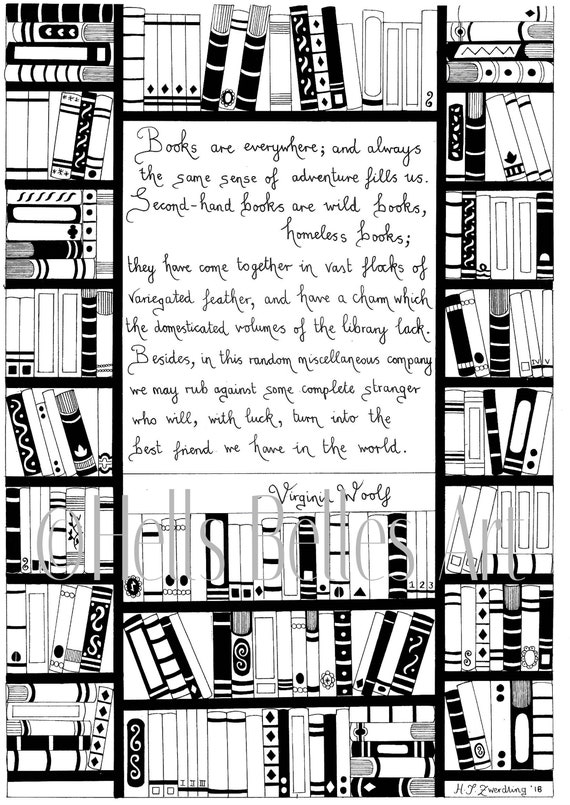 Books are everywhere; and always
the same sense of adventure fills us.
Second-hand books are wild books,
homeless books;
they have come together in vast flocks of
variegated feather, and have a charm which
the domesticated volumes of the library lack.
Besides, in this random miscellaneous company
we may rub against some complete stranger
who will, with luck, turn into the
best friend we have in the world.
Virginia Woolf
©Hells Belles Art
IV V
1 2 3
I II III
H.J. Zwerdling '18